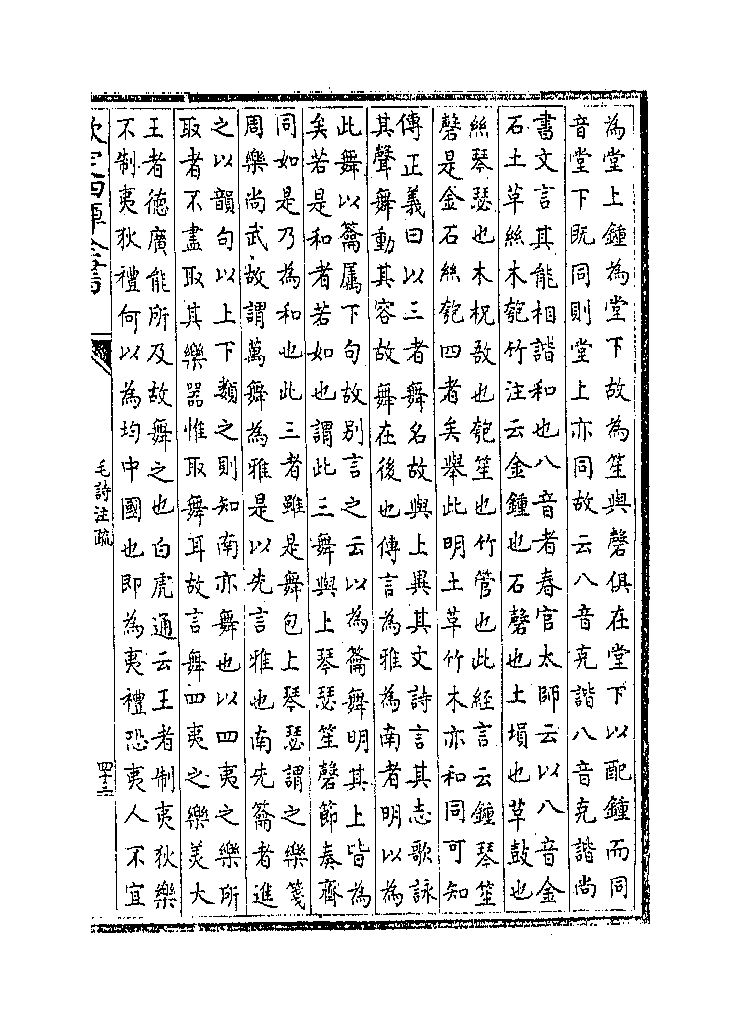 為堂上鍾為堂下故為笙與磬俱在堂下以配鍾而同
音堂下既同則堂上亦同故云八音克諧八音克諧尚
書文言其能相諧和也八音者春官太師云以八音金
石土草絲木匏竹注云金鍾也石磬也土塤也草鼓也
絲琴瑟也木柷敔也匏笙也竹管也此經言云鍾琴笙
磬是金石絲匏四者矣舉此明土草竹木亦和同可知
傳正義曰以三者舞名故與上異其文詩言其志歌詠
其聲舞動其容故舞在後也傳言為雅為南者明以為
此舞以籥屬下句故別言之云以為籥舞明其上皆為
矣若是和者若如也謂此三舞與上琴瑟笙磬節奏齊
同如是乃為和也此三者雖是舞包上琴瑟謂之樂箋
周樂尚武故謂萬舞為雅是以先言雅也南先籥者進
之以韻句以上下類之則知南亦舞也以四夷之樂所
取者不盡取其樂器惟取舞耳故言舞四夷之樂美大
王者德廣能所及故舞之也白虎通云王者制夷狄樂
不制夷狄禮何以為均中國也即為夷禮恐夷人不宜
欽定四庫全書
毛詩注疏
四十二